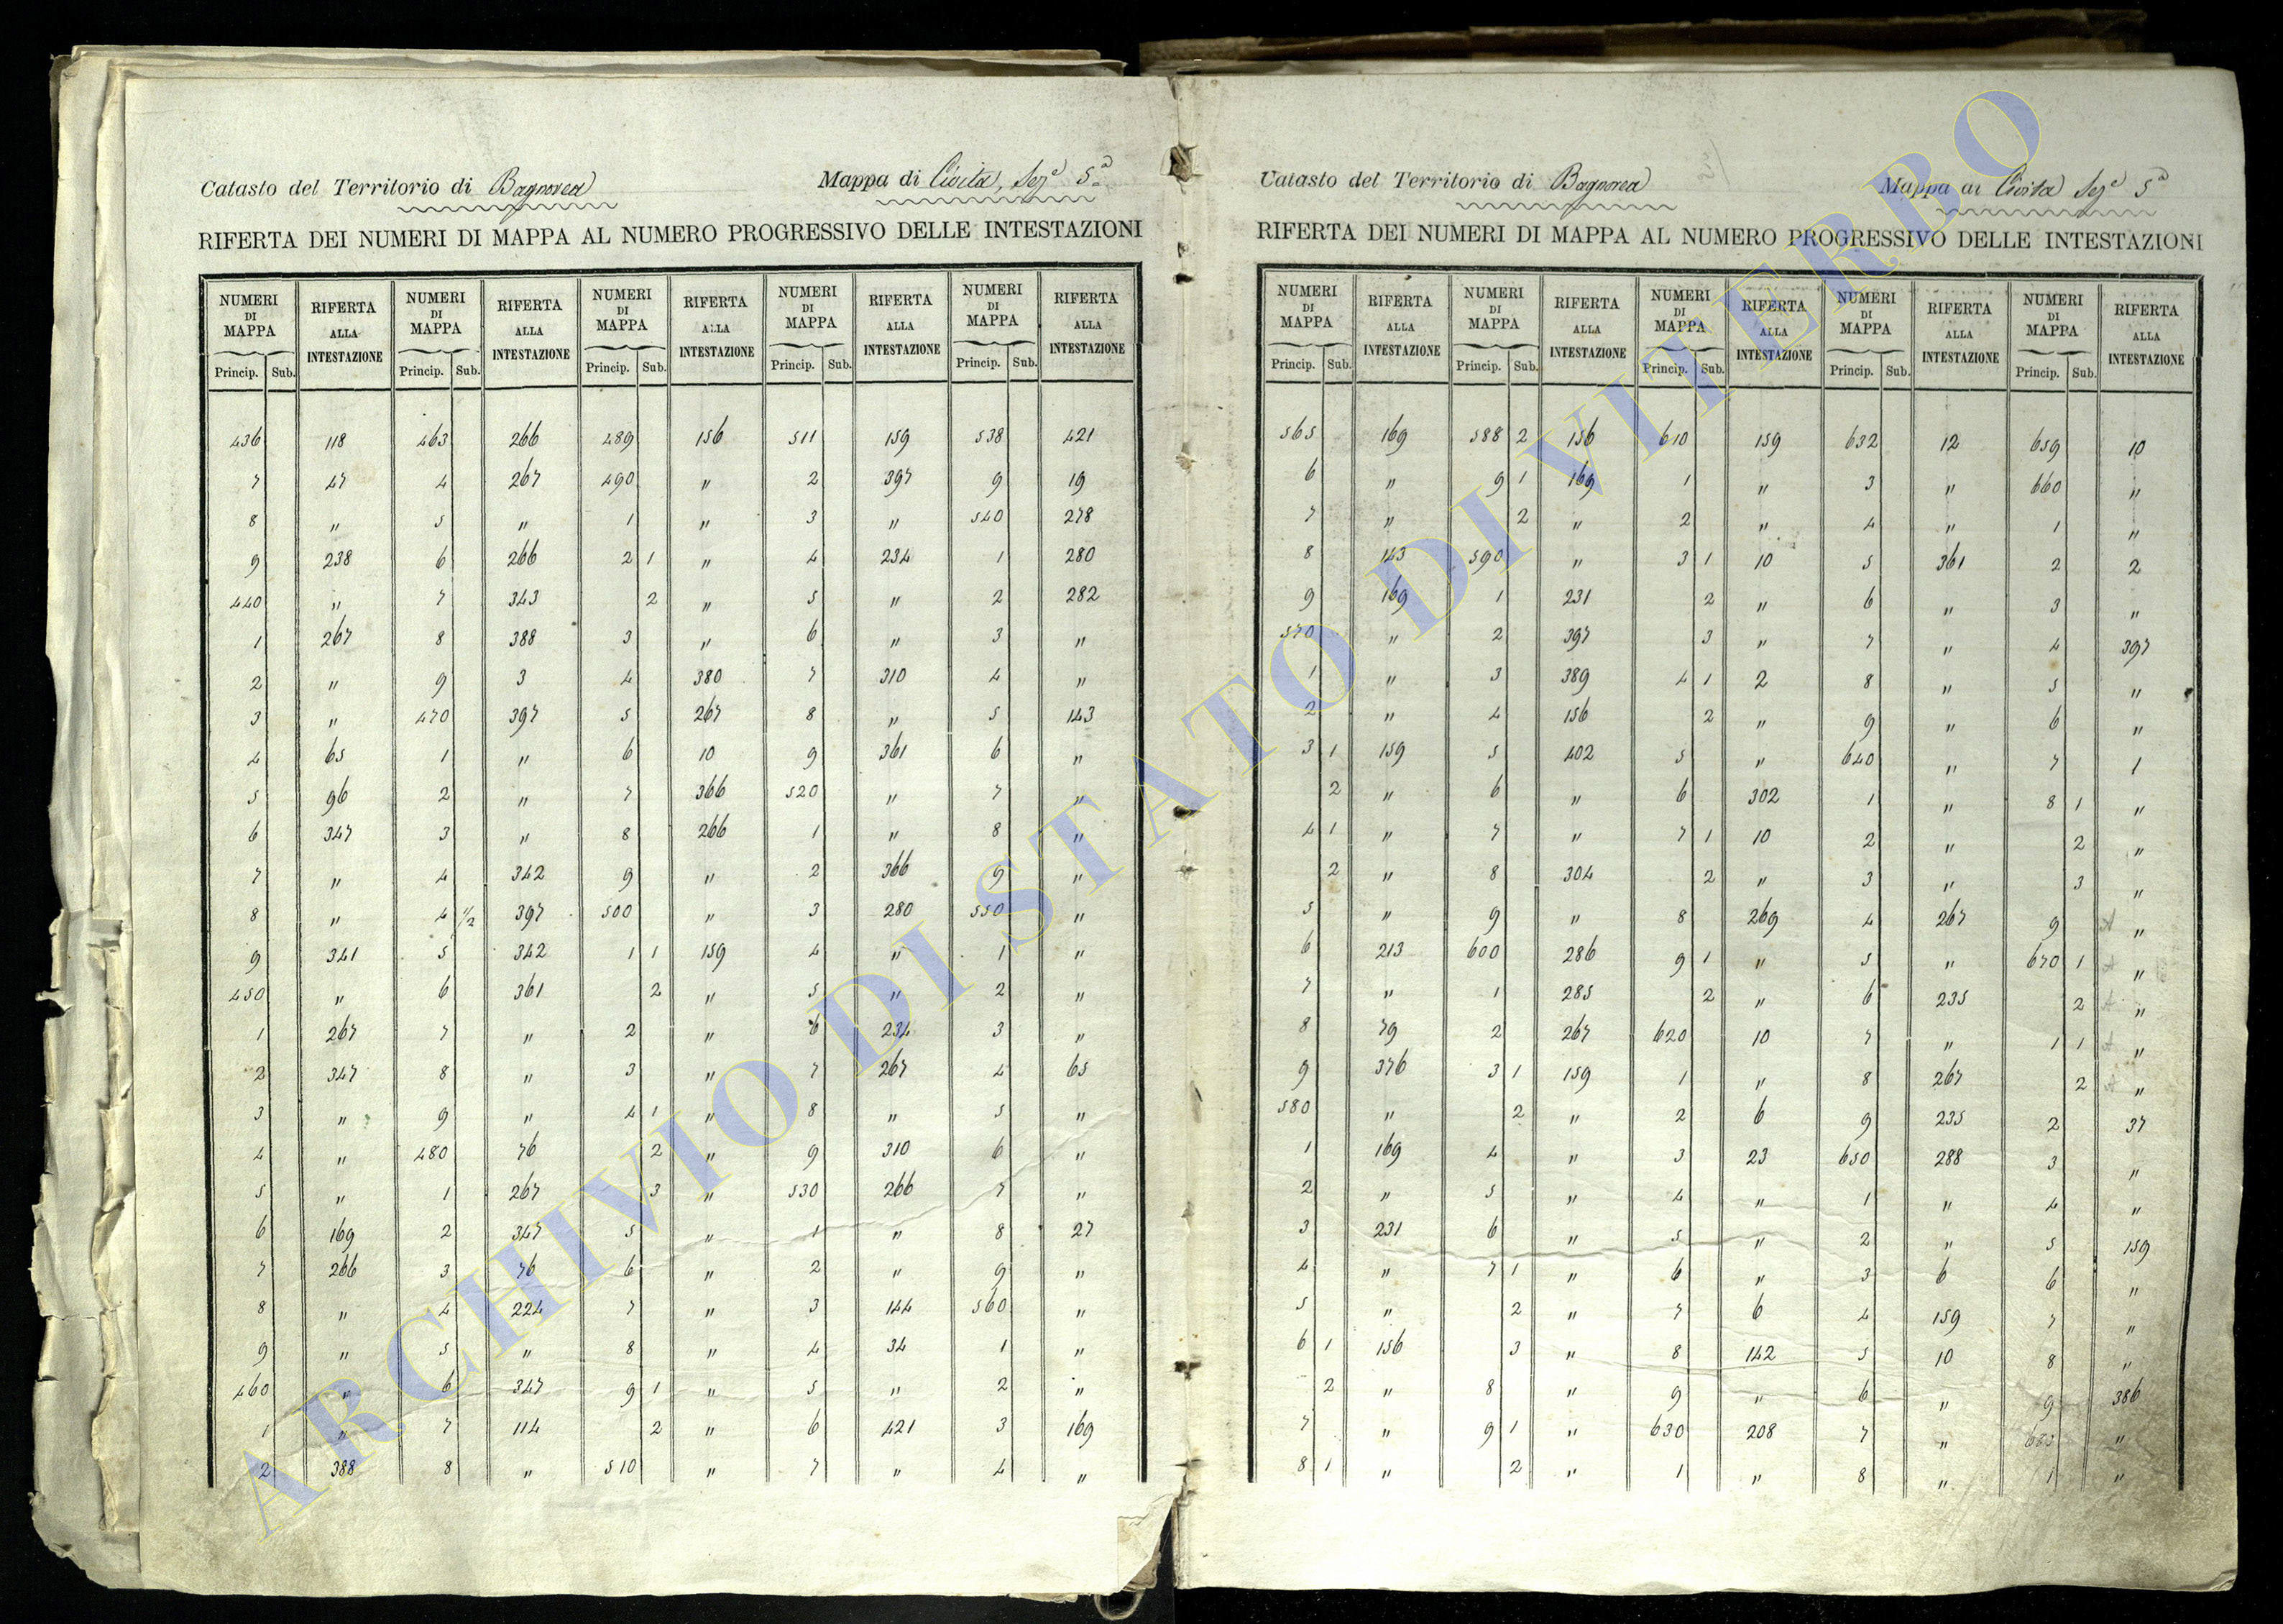 Catasto del Territorio di Bagnorea Mappa di Civita, Sez.e 5.a
RIFERTA DEI NUMERI DI MAPPA AL NUMERO PROGRESSIVO DELLE INTESTAZIONI
NUMERI DI MAPPA RIFERTA ALLA INTESTAZIONE NUMERI DI MAPPA RIFERTA ALLA INTESTAZIONE NUMERI DI MAPPA RIFERTA ALLA INTESTAZIONE NUMERI DI MAPPA RIFERTA ALLA INTESTAZIONE NUMERI DI MAPPA RIFERTA ALLA INTESTAZIONE
Princip. Sub. Princip. Sub. Princip. Sub. Princip. Sub. Princip. Sub.
436 118 463 266 489 156 511 159 538 421
7 47 4 267 490 " 2 397 9 19
8 " 5 " 1 " 3 " 540 278
9 238 6 266 2 1 " 4 234 1 280
440 " 7 343 2 " 5 " 2 282
1 267 8 388 3 " 6 " 3 "
2 " 9 3 4 380 7 310 4 "
3 " 470 397 5 267 8 " 5 143
4 65 1 " 6 10 9 361 6 "
5 96 2 " 7 366 520 " 7 "
6 347 3 " 8 266 1 " 8 "
7 " 4 342 9 " 2 366 9 "
8 " 4 1/2 397 500 " 3 280 550 "
9 341 5 342 1 1 159 4 " 1 "
450 " 6 361 2 " 5 " 2 "
1 267 7 " 2 " 6 234 3 "
2 347 8 " 3 " 7 267 4 65
3 " 9 " 4 1 " 8 " 5 "
4 " 480 76 2 " 9 310 6 "
5 " 1 267 3 " 530 266 7 "
6 169 2 347 5 " 1 " 8 27
7 266 3 76 6 " 2 " 9 "
8 " 4 224 7 " 3 144 560 "
9 " 5 " 8 " 4 34 1 "
460 " 6 347 9 1 " 5 " 2 "
1 " 7 114 2 " 6 421 3 169
2 388 8 " 510 " 7 " 4 "
Catasto del Territorio di Bagnorea Mappa di Civita Sez.e 5a
RIFERTA DEI NUMERI DI MAPPA AL NUMERO PROGRESSIVO DELLE INTESTAZIONI
NUMERI DI MAPPA RIFERTA ALLA INTESTAZIONE NUMERI DI MAPPA RIFERTA ALLA INTESTAZIONE NUMERI DI MAPPA RIFERTA ALLA INTESTAZIONE NUMERI DI MAPPA RIFERTA ALLA INTESTAZIONE NUMERI DI MAPPA RIFERTA ALLA INTESTAZIONE
Princip. Sub. Princip. Sub. Princip. Sub. Princip. Sub. Princip. Sub.
565 169 588 2 156 610 159 632 12 659 10
6 " 9 1 169 1 " 3 " 660 "
7 " 2 " 2 " 4 " 1 "
8 143 590 " 3 1 10 5 361 2 2
9 169 1 231 2 " 6 " 3 "
570 " 2 397 3 " 7 " 4 397
1 " 3 389 4 1 2 8 " 5 "
2 " 4 156 2 " 9 " 6 "
3 1 159 5 402 5 " 640 " 7 1
2 " 6 " 6 302 1 " 8 1 "
4 1 " 7 " 7 1 10 2 " 2 "
2 " 8 304 2 " 3 " 3 "
5 " 9 " 8 269 4 267 9 "
6 213 600 286 9 1 " 5 " 670 1 "
7 " 1 285 2 " 6 235 2 "
8 79 2 267 620 10 7 " 1 1 "
9 376 3 1 159 1 " 8 267 2 "
580 " 2 " 2 6 9 235 2 37
1 169 4 " 3 23 650 288 3 "
2 " 5 " 4 " 1 " 4 "
3 231 6 " 5 " 2 " 5 159
4 " 7 1 " 6 " 3 6 6 "
5 " 2 " 7 6 4 159 7 "
6 1 156 3 " 8 142 5 10 8 "
2 " 8 " 9 " 6 " 9 386
7 " 9 1 " 630 208 7 " 680 "
8 1 " 2 " 1 " 8 " 1 "
ARCHIVIO DI STATO DI VITERBO